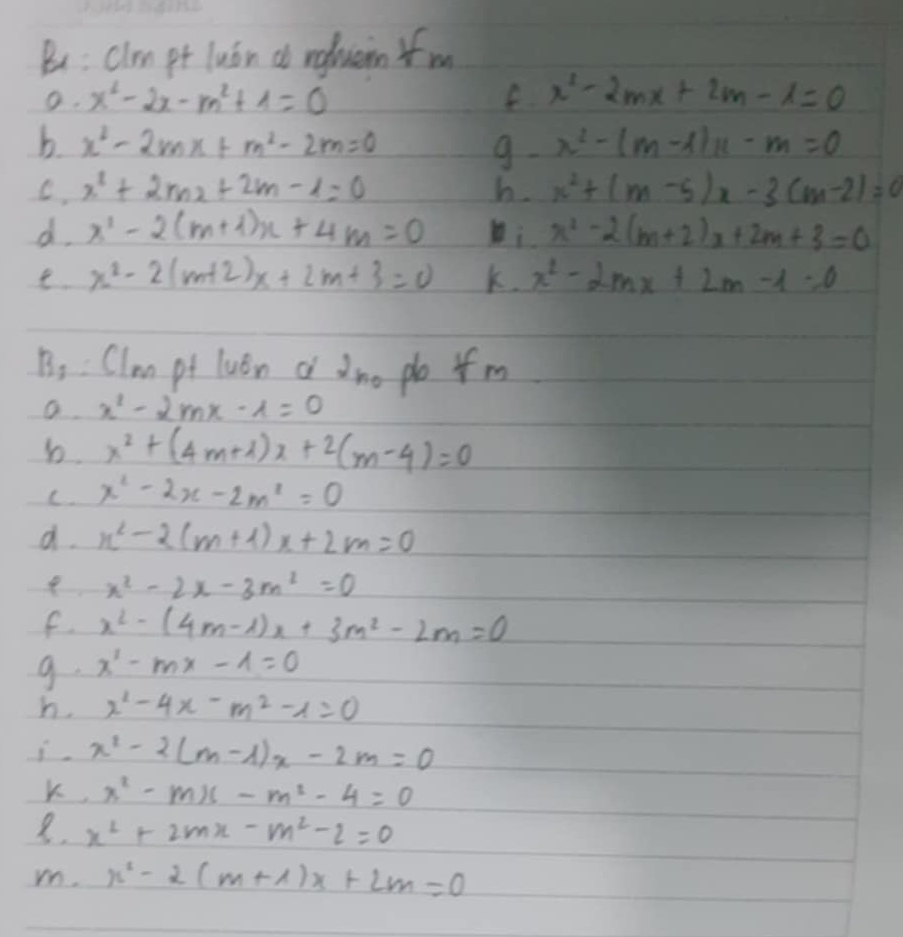 B1: Clm pt luôn có nghiệm ∀m
a. x² - 2x - m² + 1 = 0
b. x² - 2mx + m² - 2m = 0
c. x² + 2mx + 2m - 1 = 0
d. x² - 2(m+1)x + 4m = 0
e. x² - 2(m+2)x + 2m + 3 = 0
f. x² - 2mx + 2m - 1 = 0
g. x² - (m-1)x - m = 0
h. x² + (m-5)x - 3(m-2) = 0
i. x² - 2(m+2)x + 2m + 3 = 0
k. x² - 2mx + 2m - 1 = 0
B2: Clm pt luôn có 2no pb ∀m
a. x² - 2mx - 1 = 0
b. x² + (4m+1)x + 2(m-4) = 0
c. x² - 2x - 2m² = 0
d. x² - 2(m+1)x + 2m = 0
e. x² - 2x - 3m² = 0
f. x² - (4m-1)x + 3m² - 2m = 0
g. x² - mx - 1 = 0
h. x² - 4x - m² - 1 = 0
i. x² - 2(m-1)x - 2m = 0
k. x² - mx - m² - 4 = 0
l. x² + 2mx - m² - 2 = 0
m. x² - 2(m+1)x + 2m = 0